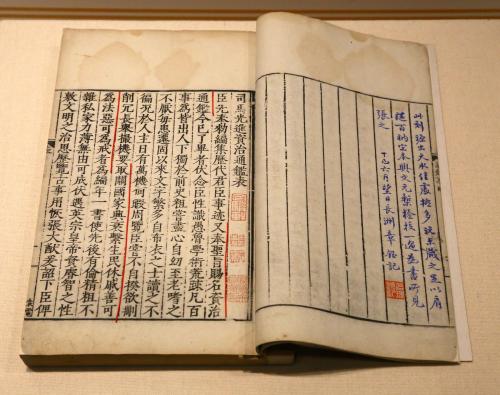 此刻
丁巳六月望日長洲章鈺記
司馬光進資治通鑑表
臣光奉勅編集歷代君臣事迹又奉聖旨賜名資治
通鑑今已了畢者伏念臣性識愚魯學術荒疎凡百
事為皆出人下獨於前史粗嘗盡心自幼至老嗜之
不厭每患遷固以來文字繁多自布衣之士讀之不
徧况於人主日有萬機何暇周覽臣常不自揆欲刪
削冗長舉撮機要取關國家興衰繫生民休戚善可
為法惡可為戒者為編年一書使先後有倫精粗不
雜私家力薄無由可成伏遇英宗皇帝資睿智之性
敷文明之治思歷覽古事用恢張大猷爰詔下臣俾